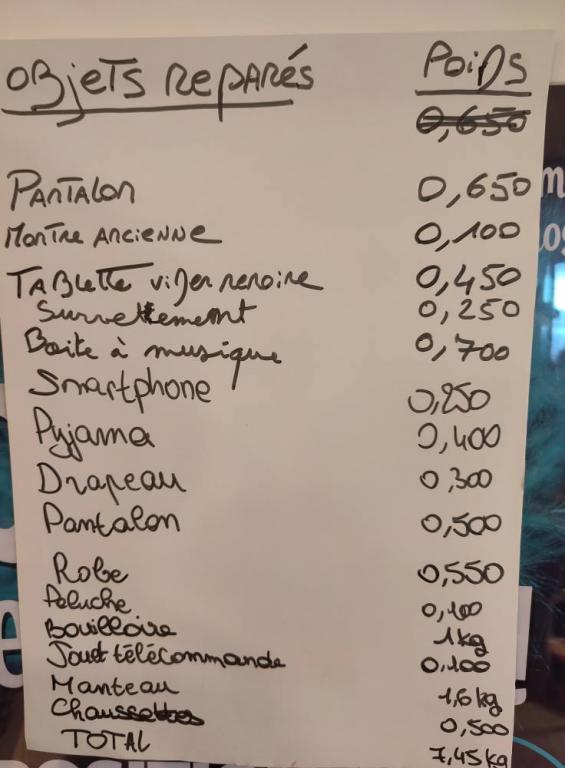 OBJETS REPARÉS POIDS
0,650
PANTALON 0,650
MONTRE ANCIENNE 0,100
TABLETTE 0,450
Survettement 0,250
Boite à musique 0,700
Smartphone 0,250
Pyjama 0,400
Drapeau 0,300
Pantalon 0,500
Robe 0,550
Peluche 0,100
Bouilloire 1kg
Jouet télécommande 0,100
Manteau 1,6kg
Chaussettes 0,500
TOTAL 7,45kg